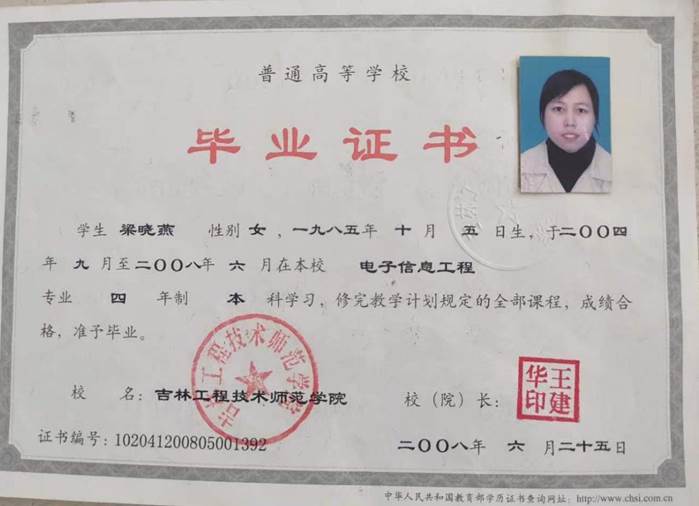 普通高等学校
毕业证书
学生 梁晓燕 性别 女 ，一九八五年 十 月 五 日生，于二〇〇四
年 九 月至二〇〇八年 六 月在本校 电子信息工程
专业 四 年制 本 科学习，修完教学计划规定的全部课程，成绩合
格，准予毕业。
校 名：吉林工程技术师范学院 校（院）长：
王建华印
吉林工程技术师范学院
证书编号：102041200805001392 二〇〇八年 六 月二十五日
中华人民共和国教育部学历证书查询网址：http://www.chsi.com.cn